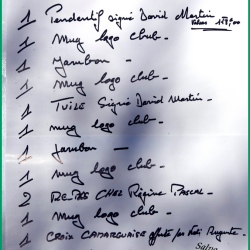 1 Pendentif signé David Martin
1 Mug logo club -
1 Jambon -
1 Mug logo club -
1 TUILE Signé David Martin -
1 mug logo club -
1 Jambon -
1 Mug logo club -
2 REPAS CHEZ Régine PASCAL -
1 Mug logo club -
1 CROIX CAMARGUAISE offerte par